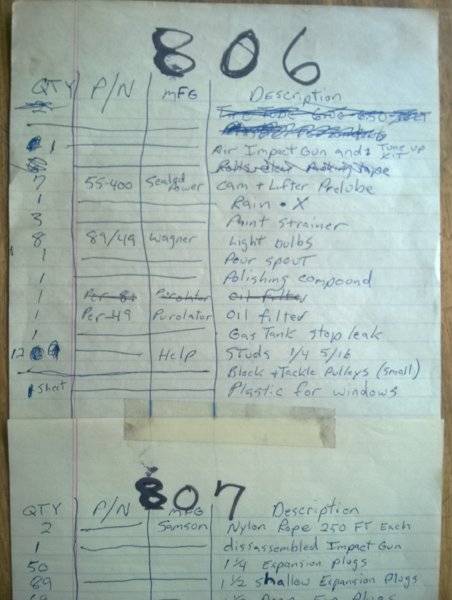 806
QTY P/N MFG Description
1 Air Impact Gun and 1 Tune up Kit
7 55-400 Sealed Power Cam + Lifter Prelube
1 Rain • X
3 Paint Strainer
8 89/49 Wagner Light bulbs
1 Pour spout
1 Polishing compound
1 Oil filter
1 Per-49 Purolator Oil filter
1 Gas Tank stop leak
12 Help Studs 1/4 5/16
Block + Tackle Pulleys (small)
1 Sheet Plastic for windows
807
QTY P/N MFG Description
2 Samson Nylon Rope 250 FT Each
1 dissassembled Impact Gun
50 1 1/4 Expansion plugs
89 1 1/2 shallow Expansion Plugs